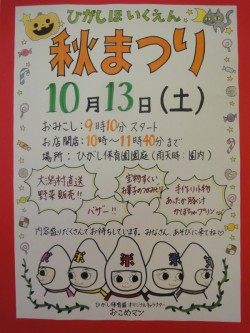 ひがしほいくえん
秋まつり
10月13日(土)
おみこし:9時10分スタート
お店開店:10時〜11時40分まで
場所:ひがし保育園園庭(雨天時:園内)
大潟村直送
野菜販売!!
バザー!!
宝物すくい
お菓子のつめあわせ
手作り小物
あったか豚汁
かぼちゃプリン
内容盛りだくさんでお待ちしています。みなさん、あそびに来てね
ひがし保育園オリジナルキャラクター
おこめマン